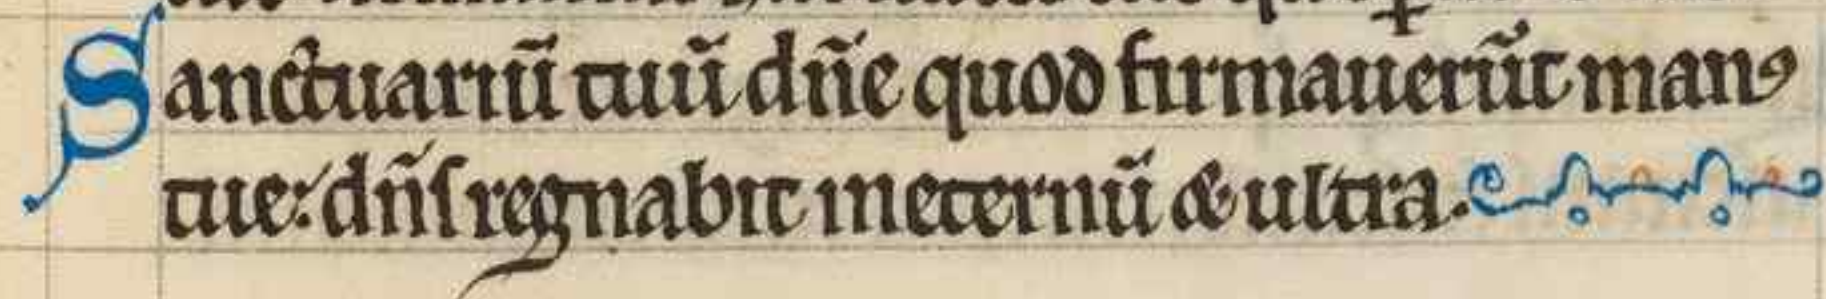 Sanctuariū tuū dn̄e quod firmauerūt manꝰ
tue: dn̄s regnabit ineternū & ultra.